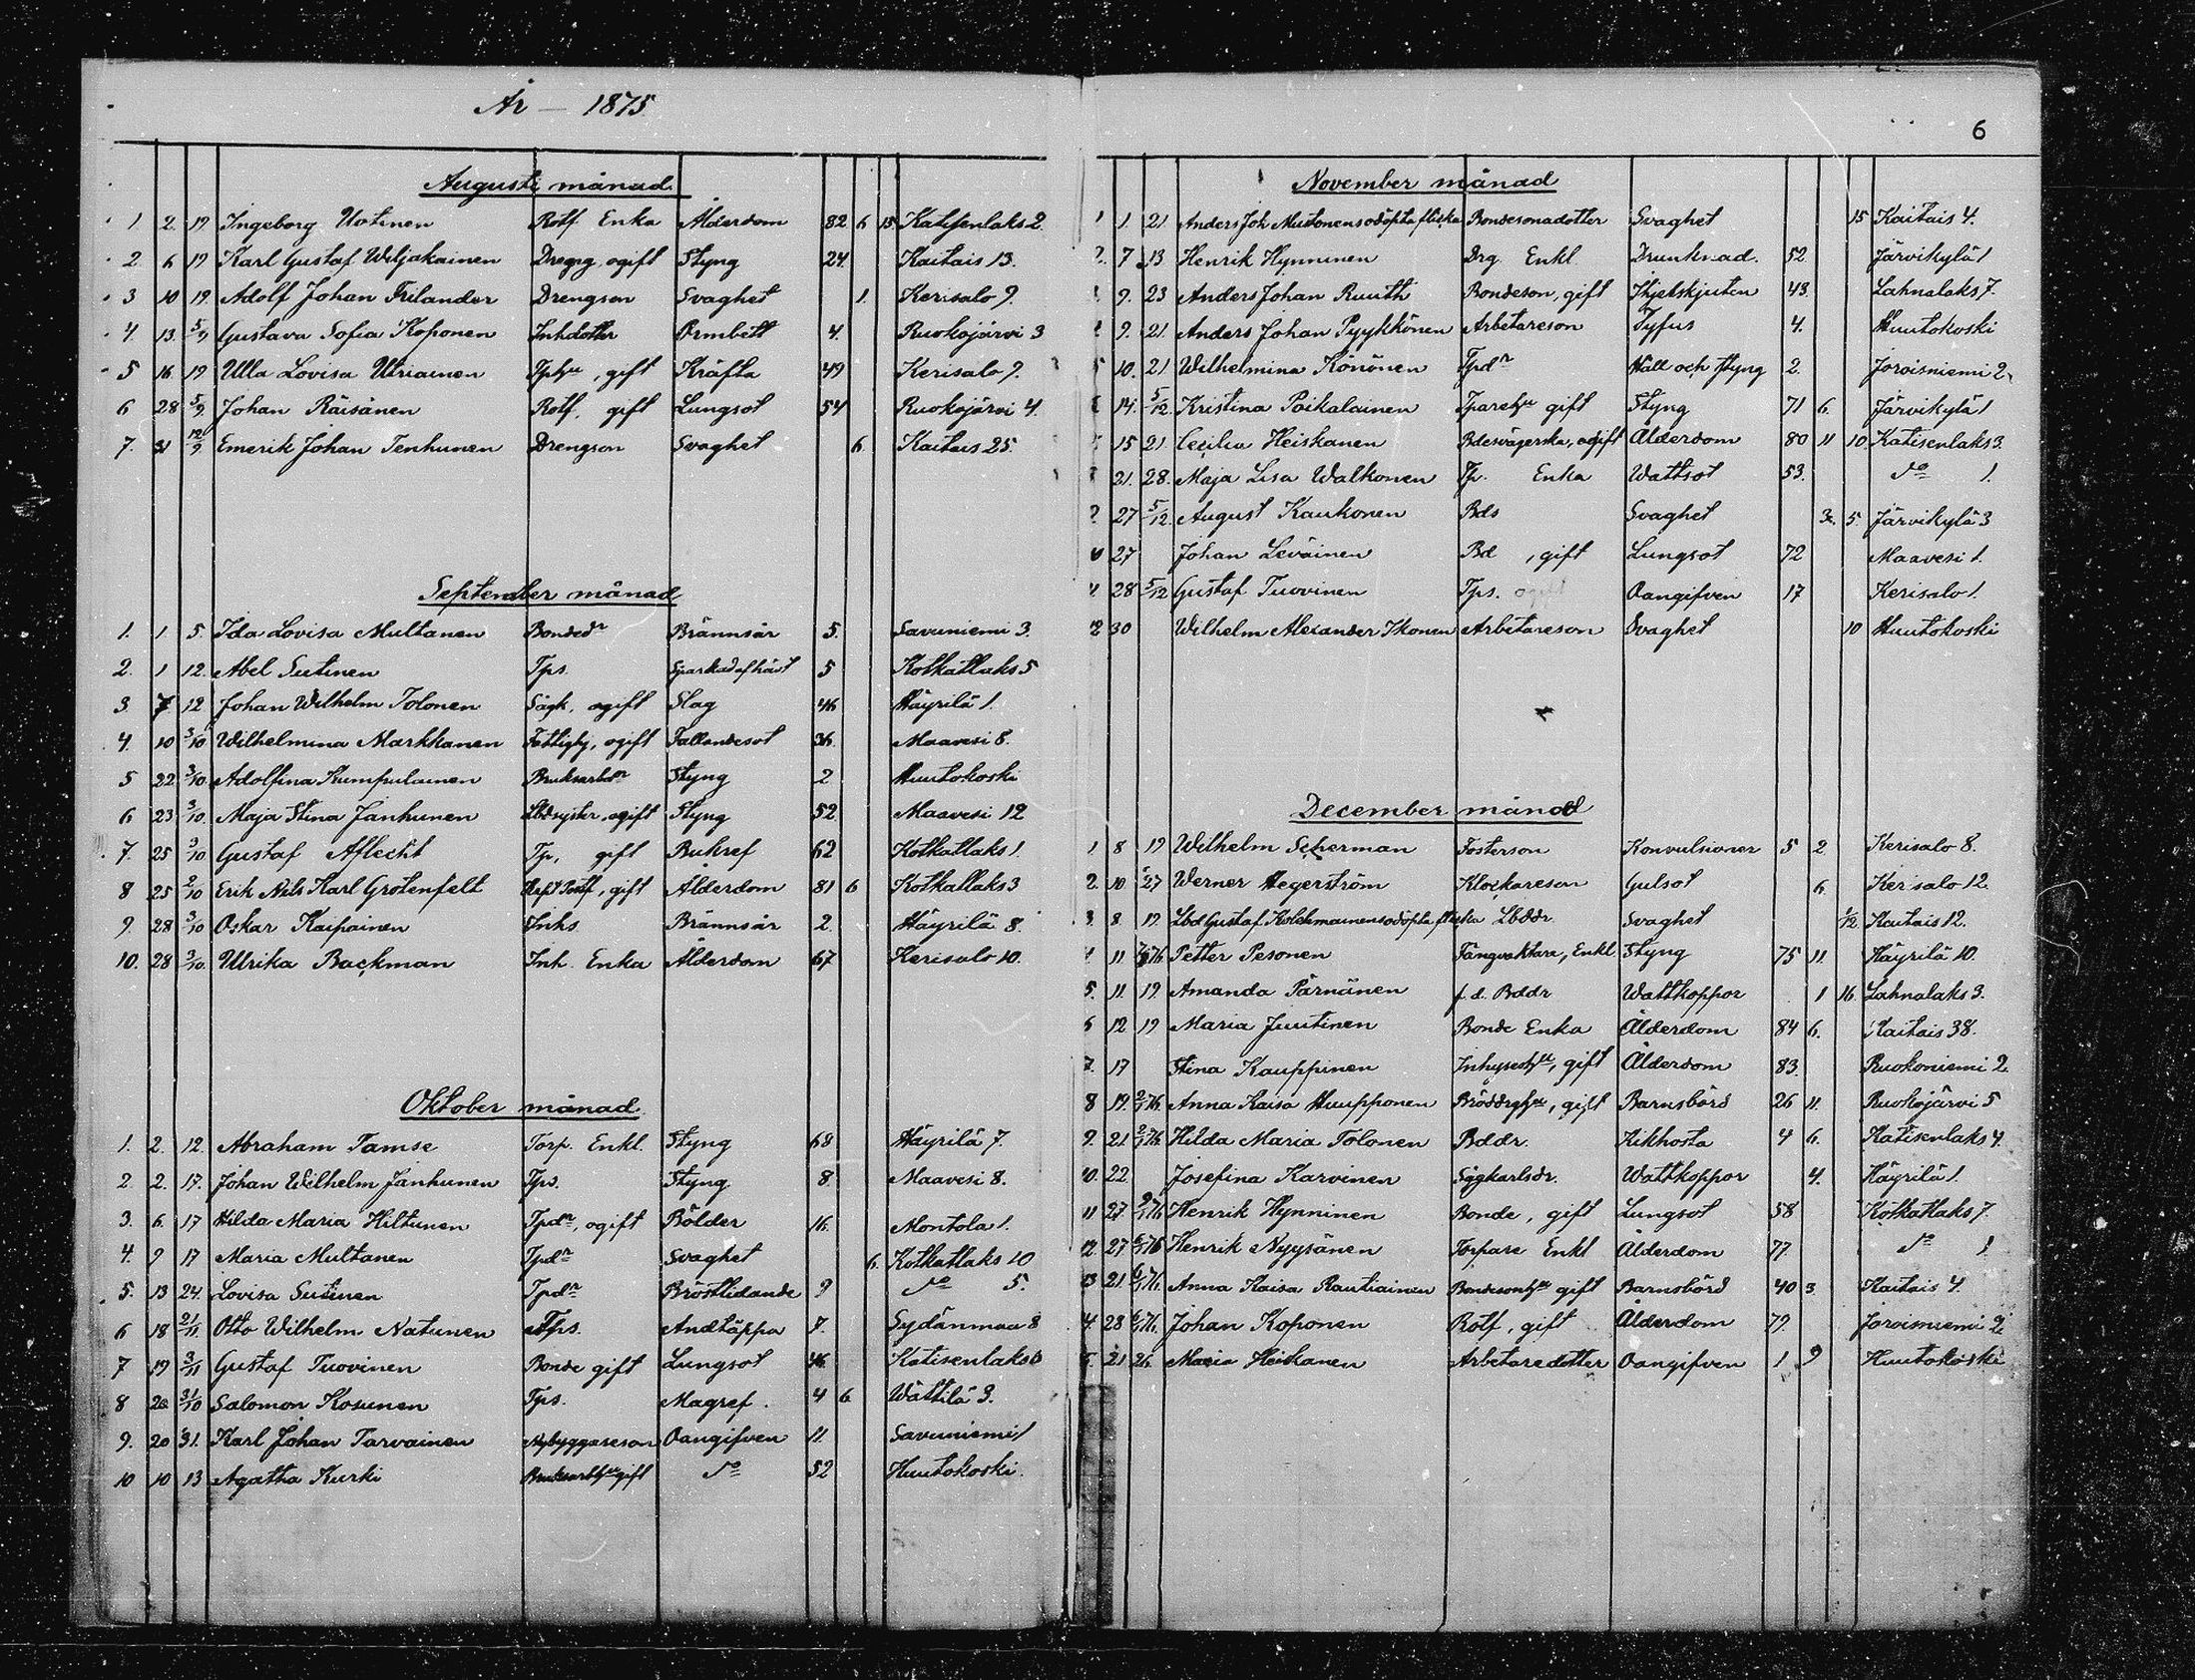 År — 1875
Augusti månad.
1 2. 19 Ingeborg Uotinen Rotf. Enka Ålderdom 82 6 15 Katisenlaks 2.
2. 6 19 Karl Gustaf Wiljakainen Dregng, ogift Styng 24. Kaitais 13.
3 10 19. Adolf Johan Frilander Drengson Svaghet 1. Kerisalo 9.
4. 13. 5/9 Gustava Sofia Koponen Inhdotter Ormbett 4. Ruokojärvi 3
5 16. 19 Ulla Lovisa Utriainen Tphu, gift Kräfta 49 Kerisalo 9.
6 28 5/9. Johan Räisänen Rotf. gift Lungsot 54 Ruokojärvi 4.
7. 31 12/9. Emerik Johan Tenhunen Drengson Svaghet 6 Kaitais 25.
September månad
1. 1. 5. Ida Lovisa Multanen Bondedr Brännsår 5. Savuniemi 3.
2. 1 12. Abel Sutinen Tps. Sparkad af häst 5 Kotkatlaks 5
3 7 12 Johan Wilhelm Tolonen Sågk, ogift Slag 46 Häyrilä 1.
4. 10 3/10 Wilhelmina Markkanen Fattighj, ogift Fallandesot 36. Maavesi 8.
5 22 3/10 Adolfina Kumpulainen Bruksarbdr Styng 2 Huutokoski
6 23 3/10. Maja Stina Janhunen Lbdsyster, ogift Styng 52. Maavesi 12
7. 25 3/10 Gustaf Aflecht Tp, gift Bukref 62 Kotkatlaks 1.
8 25 2/10 Erik Nils Karl Grotenfelt gift Ålderdom 81 6 Kotkatlaks 3
9. 28 3/10 Oskar Kaipainen Inhs Brännsår 2. Häyrilä 8.
10. 28 3/10. Ulrika Backman Inh. Enka Ålderdom 67 Kerisalo 10.
Oktober månad
1. 2. 12. Abraham Tamse Torp. Enkl. Styng 68 Häyrilä 7.
2 2. 17. Johan Wilhelm Janhunen Tps. Styng 8. Maavesi 8.
3. 6. 17 Hilda Maria Hiltunen Tpdr, ogift Bölder 16. Montola 1.
4. 9 17 Maria Multanen Tpdr Svaghet 6. Kotkatlaks 10
5. 13 24. Lovisa Sutinen Tpdr Bröstlidande 9 do 5.
6 18 21/11. Otto Wilhelm Natunen Tps. Andtäppa 7. Sydänmaa 8
7 19 3/11 Gustaf Tuovinen Bonde gift Lungsot 46. Katisenlaks 6
8 20 31/10 Salomon Kosunen Tps. Magref. 4 6 Wättilä 3.
9. 20 31. Karl Johan Tarvainen Nybyggareson Oangifven 11. Savuniemi 1
10 10 13 Agatha Kurki Bruksarbhu gift do 52 Huutokoski.
6
November månad
1 1. 21. Anders Joh Mustonens odöpta flicka Bondesonadotter Svaghet 15 Kaitais 4.
2. 7 13 Henrik Hynninen Drg Enkl Drunknad. 52 Järvikylä 1
9. 23 Anders Johan Ruuth Bondeson, gift Ihjelskjuten 43. Lahnalaks 7.
9. 21. Anders Johan Pyykkönen Arbetareson Tyfus 4. Huutokoski
5 10. 21 Wilhelmina Könönen Tpdr Håll och styng 2. Joroisniemi 2.
14. 5/12. Kristina Poikalainen Tparehu gift Styng 71 6. Järvikylä 1
15 21. Cecilia Heiskanen Bdesvägerska, ogift Ålderdom 80 11 10. Katisenlaks 3.
21. 28. Maja Lisa Walkonen Tp. Enka Wattsot 53. do 1.
27 5/12. August Kaukonen Bds Svaghet 3. 5. Järvikylä 3
27 Johan Leväinen Bd, gift Lungsot 72 Maavesi 1.
28 5/12 Gustaf Tuovinen Tps. ogift Oangifven 17 Kerisalo 1.
12 30 Wilhelm Alexander Ikonen Arbetareson Svaghet 10 Huutokoski
December månad
1 8 19 Wilhelm Scherman Fosterson Konvulsioner 5 2 Kerisalo 8.
2. 10. 27 Werner Hegerström Klockareson Gulsot 6. Kerisalo 12.
3 8. 19. Lbd Gustaf Kolehmainens odöpta flicka Lbddr Svaghet 1/12. Kaitais 12.
11 76 Petter Pesonen Fångvaktare, Enkl Styng 75 11. Häyrilä 10.
5. 11. 19. Amanda Pärnänen f.d. Bddr Wattkoppor 1 16. Lahnalaks 3.
6 12 19 Maria Juutinen Bonde Enka Ålderdom 84 6. Kaitais 38.
7. 17 Stina Kauppinen Inhyseshu, gift Ålderdom 83. Ruokoniemi 2.
8 19. 2/1 76. Anna Kaisa Huupponen gift Barnsbörd 26 11. Ruokojärvi 5
9. 21 2/1 76. Hilda Maria Tolonen Bddr. Kikhosta 4 6. Katisenlaks 4.
10. 22 Josefina Karvinen Sågkarlsdr. Wattkoppor 4. Häyrilä 1.
11 27 9/1 76 Henrik Hynninen Bonde, gift Lungsot 58 Kotkatlaks 7.
12. 27 6/1 76 Henrik Nyyssänen Torpare Enkl Ålderdom 77. do 1.
13 21 6/1 76. Anna Kaisa Rautiainen Bondesonhu gift Barnsbörd 40 3 Kaitais 4.
4. 28 6/1 76. Johan Koponen Rotf, gift Ålderdom 79. Joroisniemi 9.
21 26. Maria Heiskanen Arbetaredotter Oangifven 1 9 Huutokoski